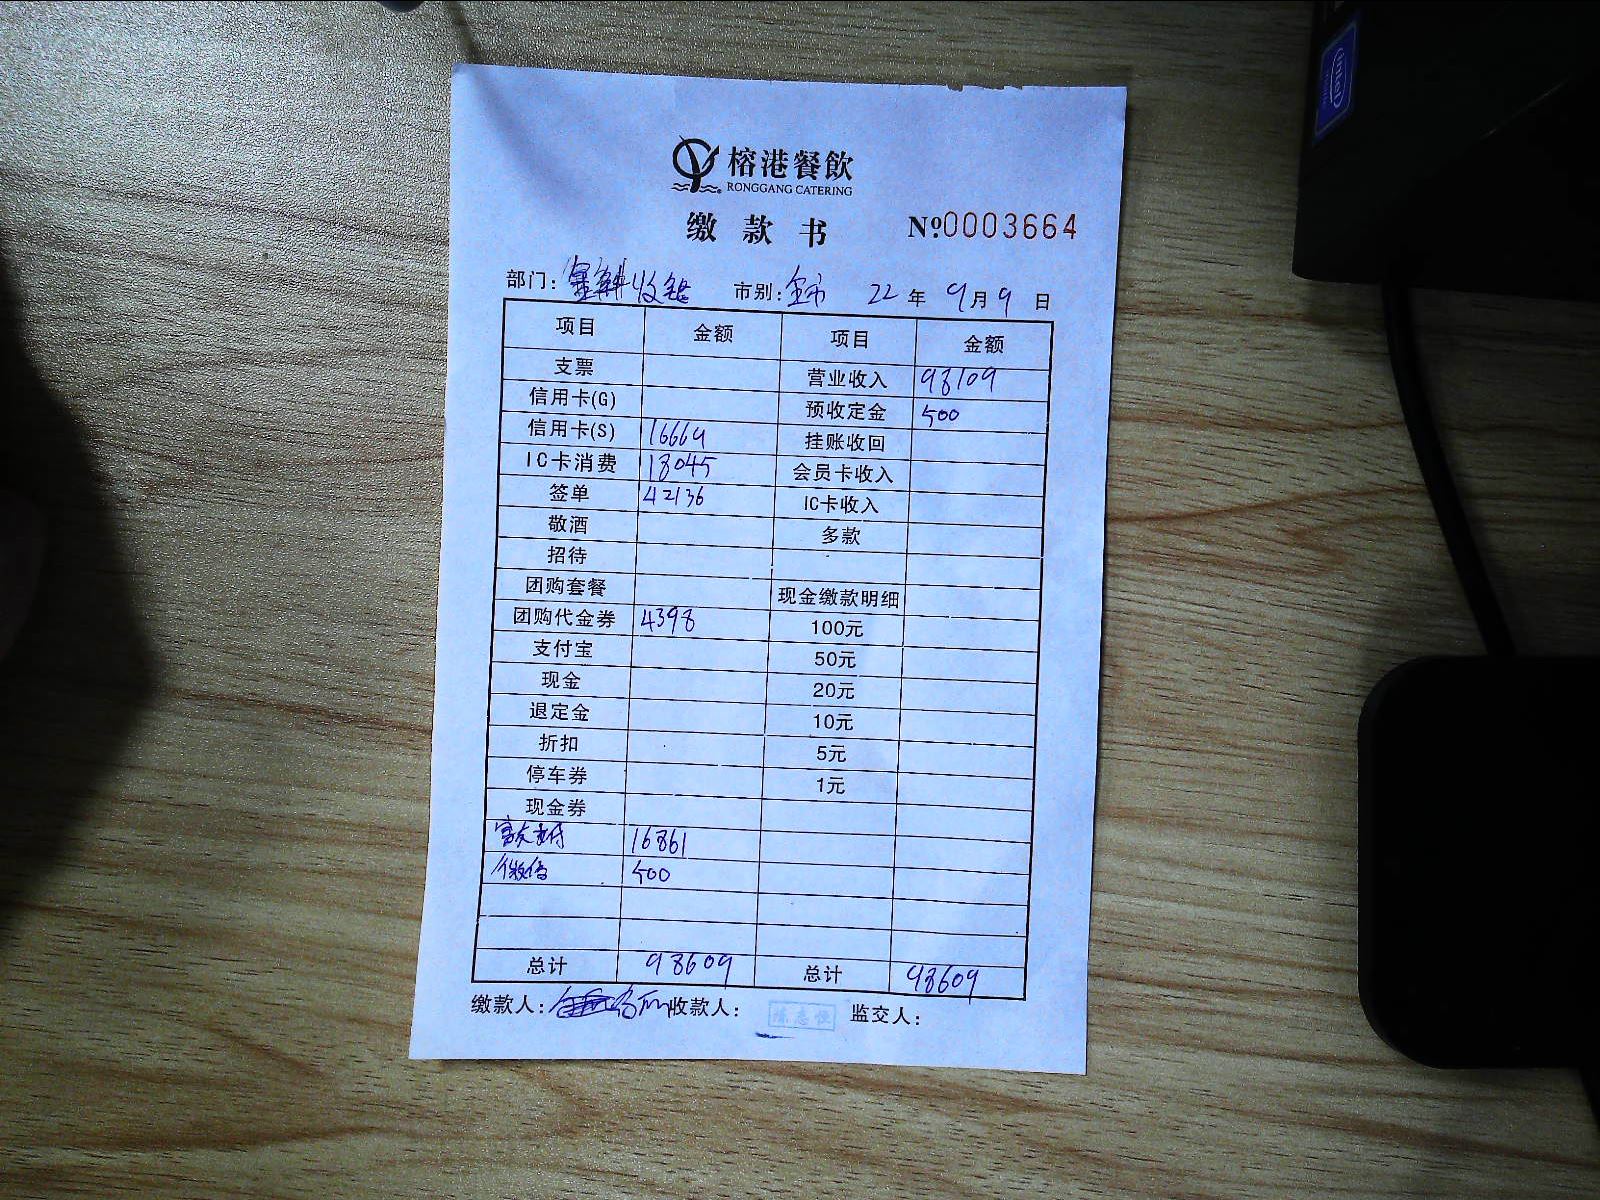 intel
榕港餐飲
RONGGANG CATERING
缴款书 №0003664
部门: 收银 市别: 全市 22年9月9日
项目 金额 项目 金额
支票 营业收入 98109
信用卡(G) 预收定金 500
信用卡(S) 16669 挂账收回
IC卡消费 18045 会员卡收入
签单 42136 IC卡收入
敬酒 多款
招待
团购套餐 现金缴款明细
团购代金券 4398 100元
支付宝 50元
现金 20元
退定金 10元
折扣 5元
停车券 1元
现金券
富友支付 16861
微信 500
总计 98609 总计 98609
缴款人: 收款人: 陈志恒 监交人: